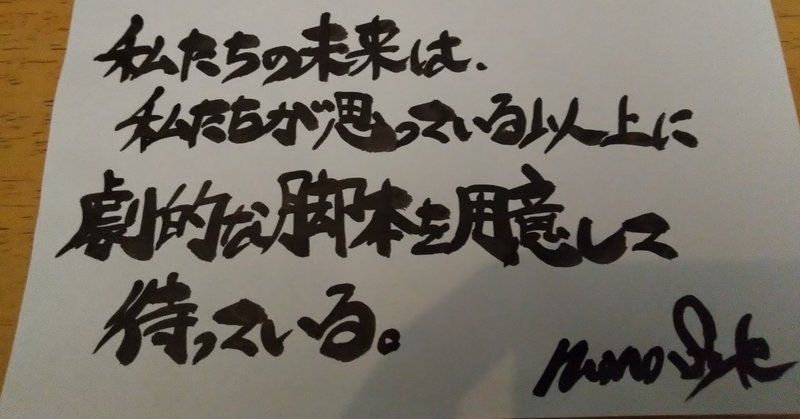 私たちの未来は、
私たちが思っている以上に
劇的な脚本を用意して
待っている。